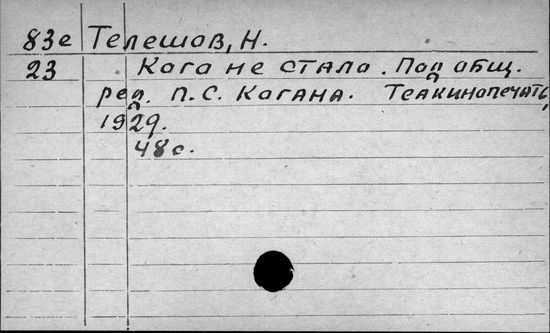 83е Телешов, Н.
23 Кого не стало. Под общ.
ред. П.С. Когана. Теакинопечать,
1929.
48с.